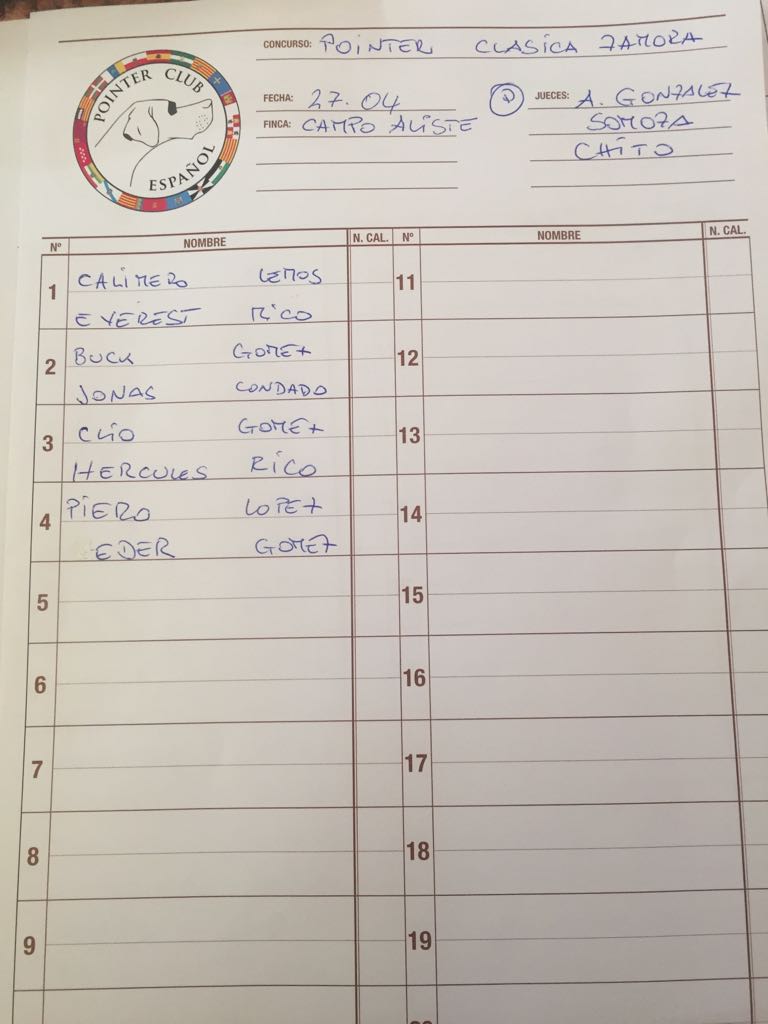 POINTER CLUB
ESPAÑOL
CONCURSO: POINTER CLASICA ZAMORA
FECHA: 27.04
FINCA: CAMPO ALISTE
JUECES: A. GONZALEZ
SOMOZA
CHITO
Nº NOMBRE N. CAL. Nº NOMBRE N. CAL.
1 CALIMERO LEMOS 11
EVEREST RICO
2 BUCK GOMEZ 12
JONAS CONDADO
3 CLIO GOMEZ 13
HERCULES RICO
4 PIERO LOPEZ 14
EDER GOMEZ
5 15
6 16
7 17
8 18
9 19